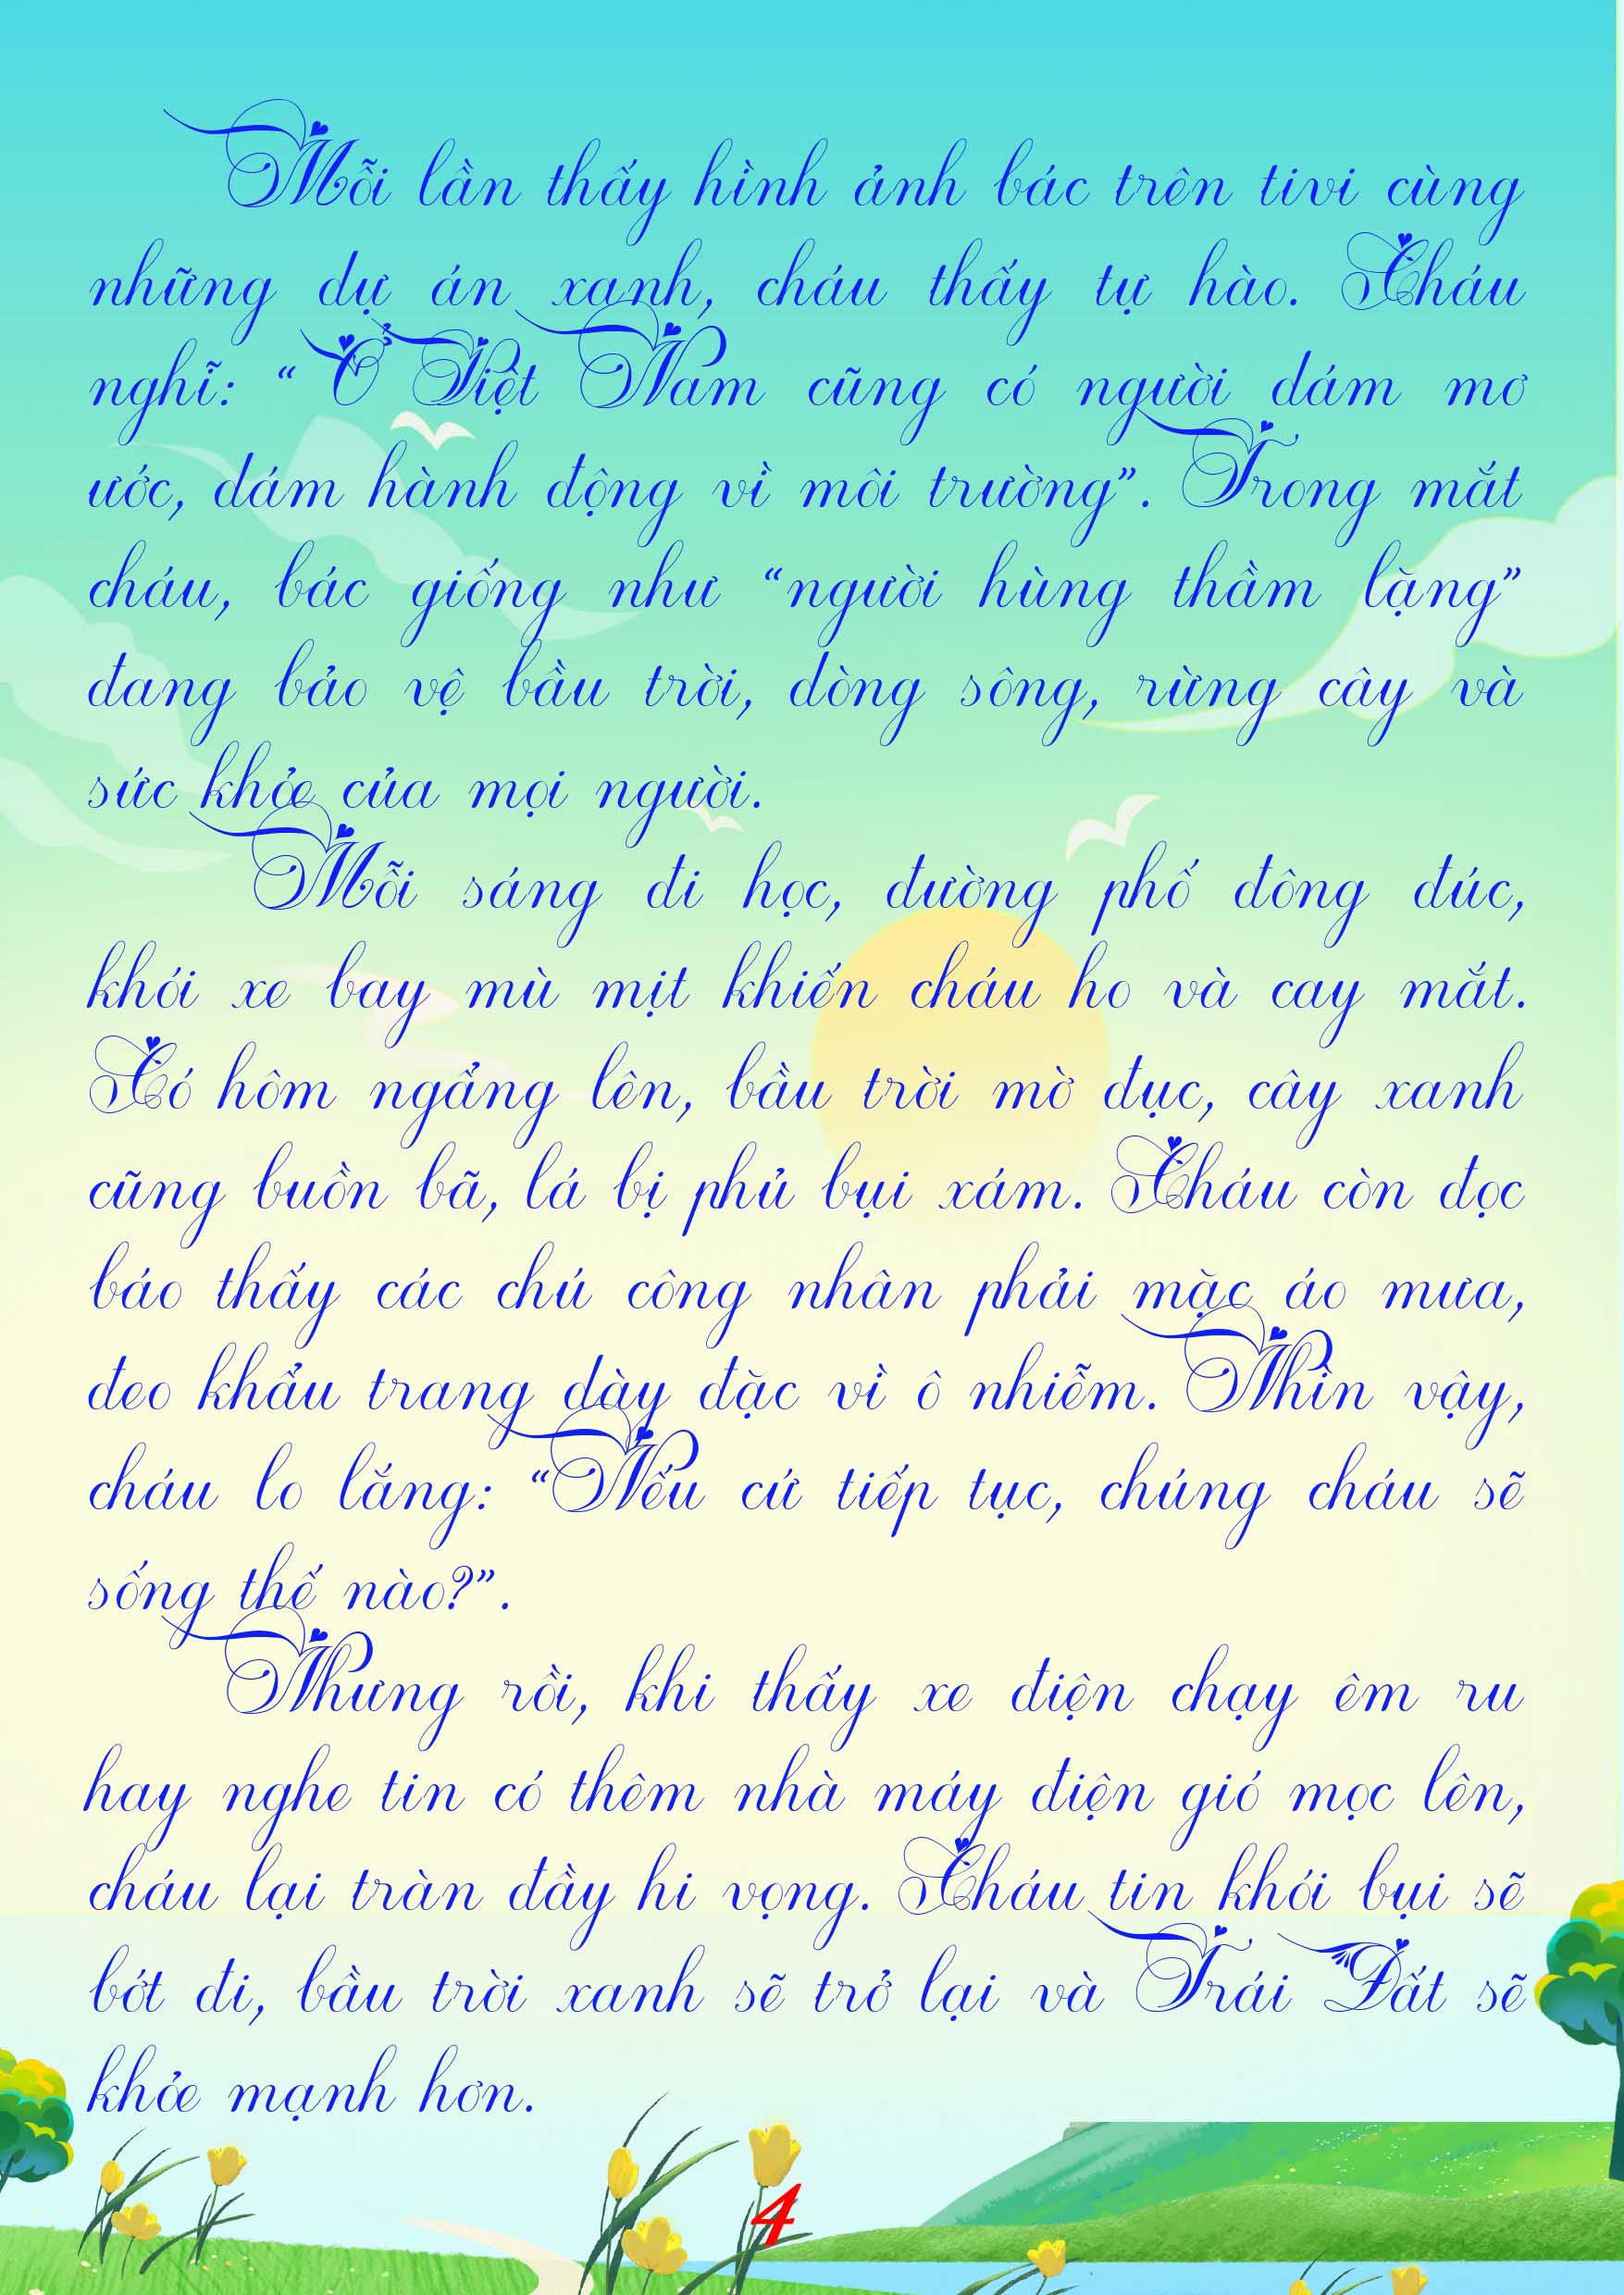 Mỗi lần thấy hình ảnh bác trên tivi cùng
những dự án xanh, cháu thấy tự hào. Cháu
nghĩ: “ Ở Việt Nam cũng có người dám mơ
ước, dám hành động vì môi trường”. Trong mắt
cháu, bác giống như “người hùng thầm lặng”
đang bảo vệ bầu trời, dòng sông, rừng cây và
sức khỏe của mọi người.
Mỗi sáng đi học, đường phố đông đúc,
khói xe bay mù mịt khiến cháu ho và cay mắt.
Có hôm ngẩng lên, bầu trời mờ đục, cây xanh
cũng buồn bã, lá bị phủ bụi xám. Cháu còn đọc
báo thấy các chú công nhân phải mặc áo mưa,
đeo khẩu trang dày đặc vì ô nhiễm. Nhìn vậy,
cháu lo lắng: “Nếu cứ tiếp tục, chúng cháu sẽ
sống thế nào?”.
Nhưng rồi, khi thấy xe điện chạy êm ru
hay nghe tin có thêm nhà máy điện gió mọc lên,
cháu lại tràn đầy hi vọng. Cháu tin khói bụi sẽ
bớt đi, bầu trời xanh sẽ trở lại và Trái Đất sẽ
khỏe mạnh hơn.
4